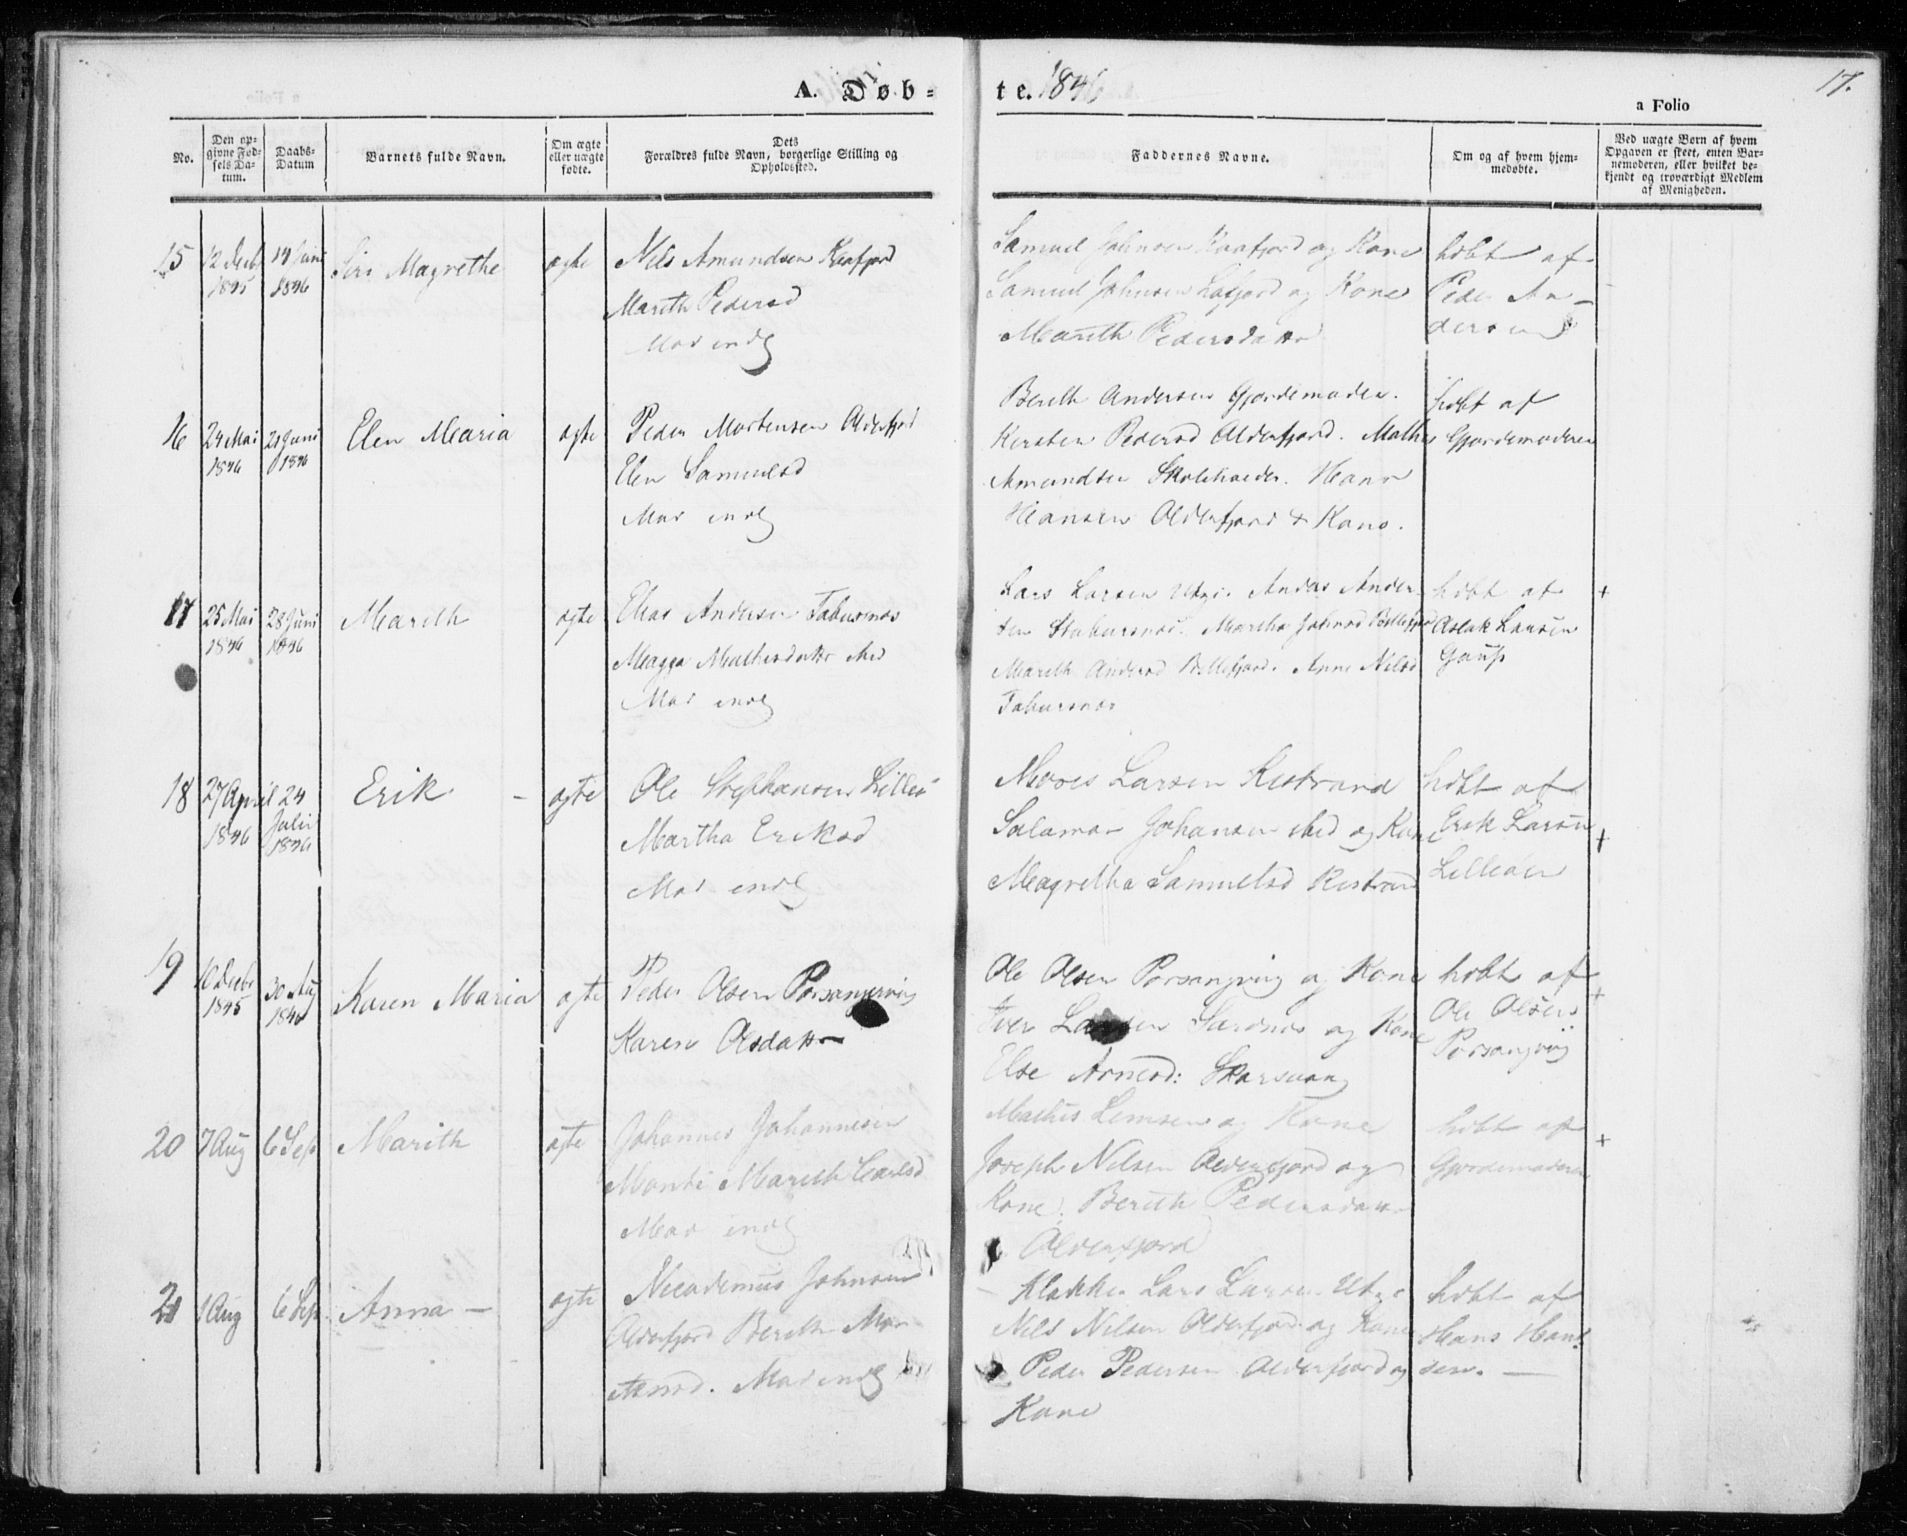 A. Døb-
te. 1846
17.
a Folio
No.
Den op-
givne Fød-
sels Da-
tum.
Daabs-
Datum
Barnets fulde Navn.
Om ægte
eller uægte
fødte.
Dets
Forældres fulde Navn, borgerlige Stilling og
Opholdssted.
Faddernes Navne.
Om og af hvem hjem-
medøbte.
Ved uægte Børn af hvem
Opgaven er skeet, enten Bar-
nemoderen, eller hvilket be-
kjendt og troværdigt Medlem
af Menigheden.
15
12 Decbr
1845
14 Juni
1846
Siri Magrethe
ægte
Nils Amundsen Kaafjord
Marith Pedersd
Mar indl
Samuel Johnsen Kaafjord og Kone
Samuel Johnsen Kaafjord og Kone
Marith Pedersdattr
hdbt af
Peder An-
dersen
16
24 Mai
1846
21 Juni
1846
Elen Maria
ægte
Peder Mortensen Olderfjord
Elen Samuelsd
Mar indl
Bereth Andersen Gjordemoder.
Kirsten Pedersd Olderfjord. Mathis
Amundsen Skoleholder. Hans
Hansen Olderfjord & Kone.
hdbt af
Gjordemoderen
17
25 Mai
1846
28 Juni
1846
Marith
ægte
Elias Andersen Tabursnæs
Magga Mathisdattr
Mar indl
Lars Larsen Andas Ander-
sen Stabursnæs. Martha Johnsd
Marith Andersd Anne Nilsd
Tabursnæs
hdbt af
Aslak Larsen
Gaup
+
18
27 April
1846
24
Juli
1846
Erik
ægte
Ole Stephansen
Martha Eriksd
Mar indl
Moses Larsen Kistrand
Salamon Johansen ibid og Kone
Magretha Samuelsd Kistrand
hdbt af
Erik Larsen
+
19
10 Decbr
1845
30 Aug
1846
Karen Maria
ægte
Peder Olsen Porsangerviig
Karen Olsdattr
Ole Olsen Porsangviig og Kone
Iver Larsen Sardnes og Kone
Else Arnesd: Skarsvaag
hdbt af
Ole Olsen
Porsangviig
+
20
7 Aug
6 Sep
Marith
ægte
Johannes Johannesen
Monti Marith Carlsd
Mar indl
Mathis Lemsen og Kone
Joseph Nilsen Olderfjord og
Kone. Berith Pedersdattr
Olderfjord
hdbt af
Gjordemoderen
+
21
1 Aug
6 Sep
Anna
ægte
Nicodemus Johnsen
Olderfjord Berith Mor-
tensd. Mar indl
Klokker Lars Larsen
Nils Nilsen Olderfjord og Kone
Peder Pedersen Olderfjord og
Kone
hdbt af
Hans Han-
sen.